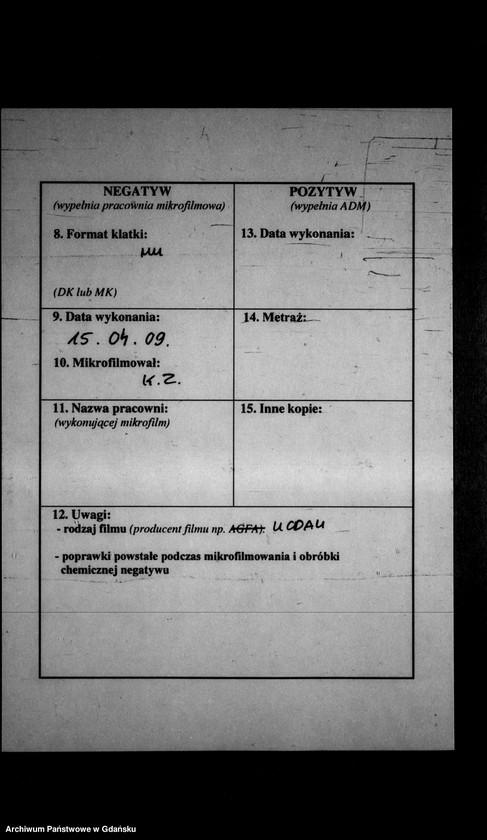 NEGATYW
(wypełnia pracownia mikrofilmowa)
8. Format klatki:
(DK lub MK)
9. Data wykonania:
15.04.09.
10. Mikrofilmował:
K.Z.
11. Nazwa pracowni:
(wykonującej mikrofilm)
POZYTYW
(wypełnia ADM)
13. Data wykonania:
14. Metraż:
15. Inne kopie:
12. Uwagi:
- rodzaj filmu (producent filmu np. AGFA):
- poprawki powstałe podczas mikrofilmowania i obróbki
chemicznej negatywu
Archiwum Państwowe w Gdańsku